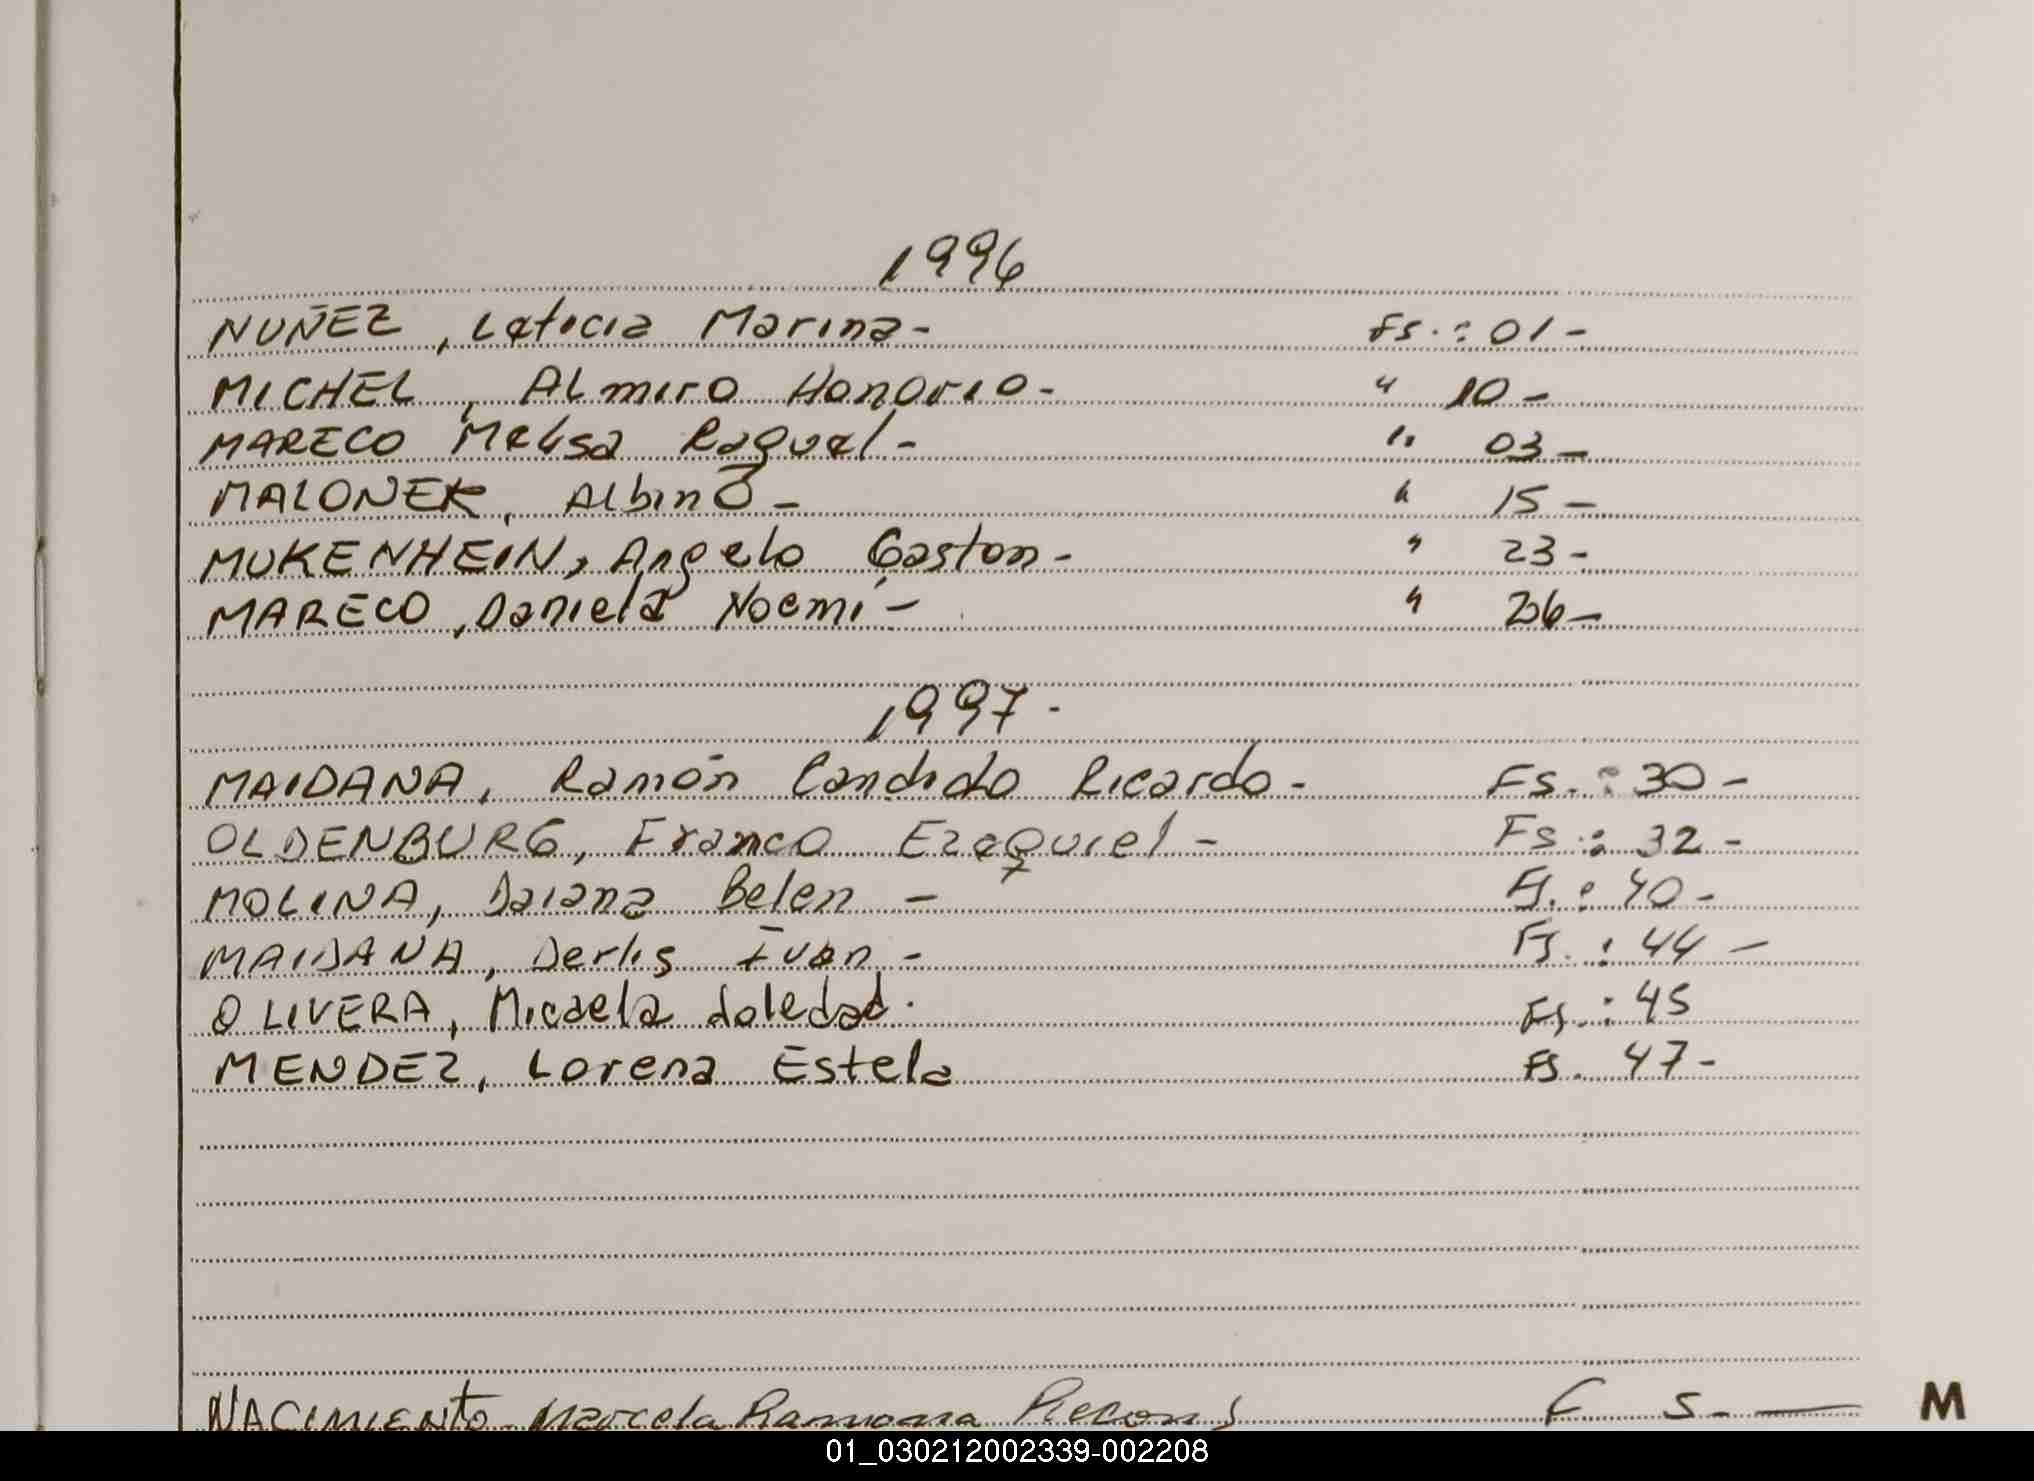 1996
NUÑEZ, Leticia Marina- Fs.: 01-
MICHEL, ALmiro Honorio- " 10-
MARECO Melisa Raquel- " 03-
MALONEK, Albino- " 15-
MUKENHEIN, Angelo Gaston- " 23-
MARECO, Daniela Noemi- " 26-
1997-
MAIDANA, Ramón Candido Ricardo- Fs.: 30-
OLDENBURG, Franco Ezequiel- Fs.: 32-
MOLINA, Daiana Belen - Fs.: 40-
MAIDANA, Derlis Ivan- Fs.: 44-
OLIVERA, Micaela Soledad. Fs.: 45
MENDEZ, Lorena Estela Fs. 47-
NACIMIENTO Marcela Ramona F 5.-
M
01_030212002339-002208